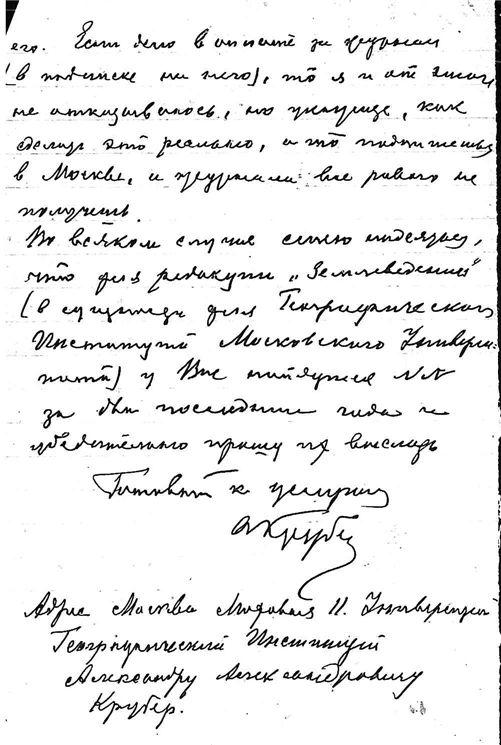 его. Если дело в оплате за журнал
(в подписке на него), то я и от этого
не отказываюсь, но укажите, как
сделать это реально, а то подпишешься
в Москве, и журнала все равно не
получишь.
Во всяком случае смею надеяться,
что для редакции „Землеведения"
(в сущности для Географического
Института Московского Универси-
тета) у Вас найдутся NN
за два последние года и
убедительно прошу их выслать
Готовый к услугам
АКрубер
Адрес Москва Моховая 11. Университет
Географический Институт
Александру Александровичу
Крубер.